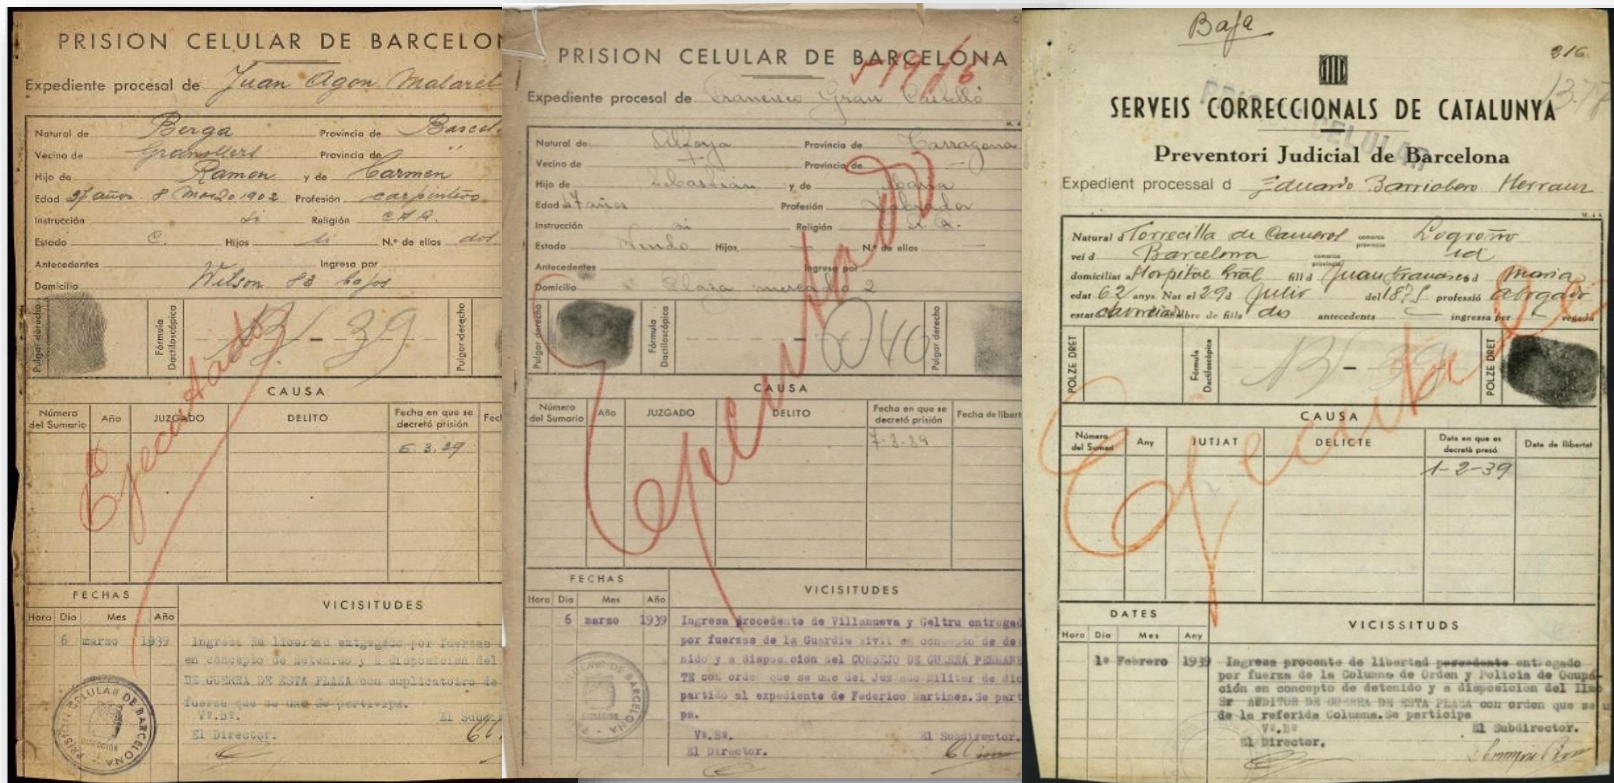 PRISION CELULAR DE BARCELON
Expediente procesal de Juan Agon Malaret
Natural de Berga Provincia de Barcel
Vecino de Granollers Provincia de "
Hijo de Ramon y de Carmen
Edad 37 años 8 Marzo 1902 Profesión carpintero
Instrucción si Religión C.A.R.
Estado C. Hijos si N.º de ellos dos
Antecedentes Ingresa por
Domicilio Wilson 83 bajos
Pulgar derecho
Fórmula Dactiloscópica
13 - 39
Pulgar derecho
Ejecutado
CAUSA
Número del Sumario Año JUZGADO DELITO Fecha en que se decretó prisión Fec
6.3.39
FECHAS VICISITUDES
Hora Dia Mes Año
6 marzo 1939 Ingresa de libertad entregado por fuerzas
en concepto de detenido y a disposicion del
DE GUERRA DE ESTA PLAZA con duplicatoiro de
fuerza que se une Se participa.
Vº.Bº. El Subd
El Director.
PRISION CELULAR DE BARCELONA
PRISION CELULAR DE BARCELONA
Expediente procesal de Francisco Gran
Natural de Provincia de Tarragona
Vecino de Provincia de
Hijo de Sebastián y de Maria
Edad 47 años Profesión Labrador
Instrucción si Religión
Estado Viudo Hijos N.º de ellos
Antecedentes Ingresa por
Domicilio Plaza mercado 2
Pulgar derecho
Fórmula Dactiloscópica
40
Pulgar derecho
Ejecutado
CAUSA
Número del Sumario Año JUZGADO DELITO Fecha en que se decretó prisión Fecha de libert
7-3-39
FECHAS VICISITUDES
Hora Dia Mes Año
6 marzo 1939 Ingresa procedente de Villanueva y Geltru entregad
por fuerzas de la Guardia Civil en concepto de de
nido y a disposicion del CONSEJO DE GUERRA PERMANE
TE con orden que se une del Juzgado Militar de dic
partido al expediente de Federico Martines.Se part
pa.
Vº.Bº El Subdirector.
El Director.
Baja
216
SERVEIS CORRECCIONALS DE CATALUNYA
CELULAR
Preventori Judicial de Barcelona
Expedient processal d Eduardo Barriobero Herranz
Natural d Torrecilla de Cameros comarca provincia Logroño
veí d Barcelona comarca provincia id
domiciliat a Hospital Gral fill d Juan Francisco i d Maria
edat 62 anys. Nat el 29 d Julio del 1875 professió abogado
estat nombre de fills dos antecedents ingressa per vegada
POLZE DRET
Fórmula Dactiloscópica
13 - 39
POLZE DRET
Ejecutado
CAUSA
Número del Sumari Any JUTJAT DELICTE Data en que es decretà presó Data de llibertat
1-2-39
DATES VICISSITUDS
Hora Dia Mes Any
1º Febrero 1939 Ingresa proconte de libertad entregado
por fuerza de la Columna de Orden y Policia de Ocupa-
ción en concepto de detenido y a disposicion del Ilmo
Sr AUDITOR DE GUERRA DE ESTA PLAZA con orden que se u
de la referida Columna.Se participa
Vº.Bº El Subdirector.
El Director,